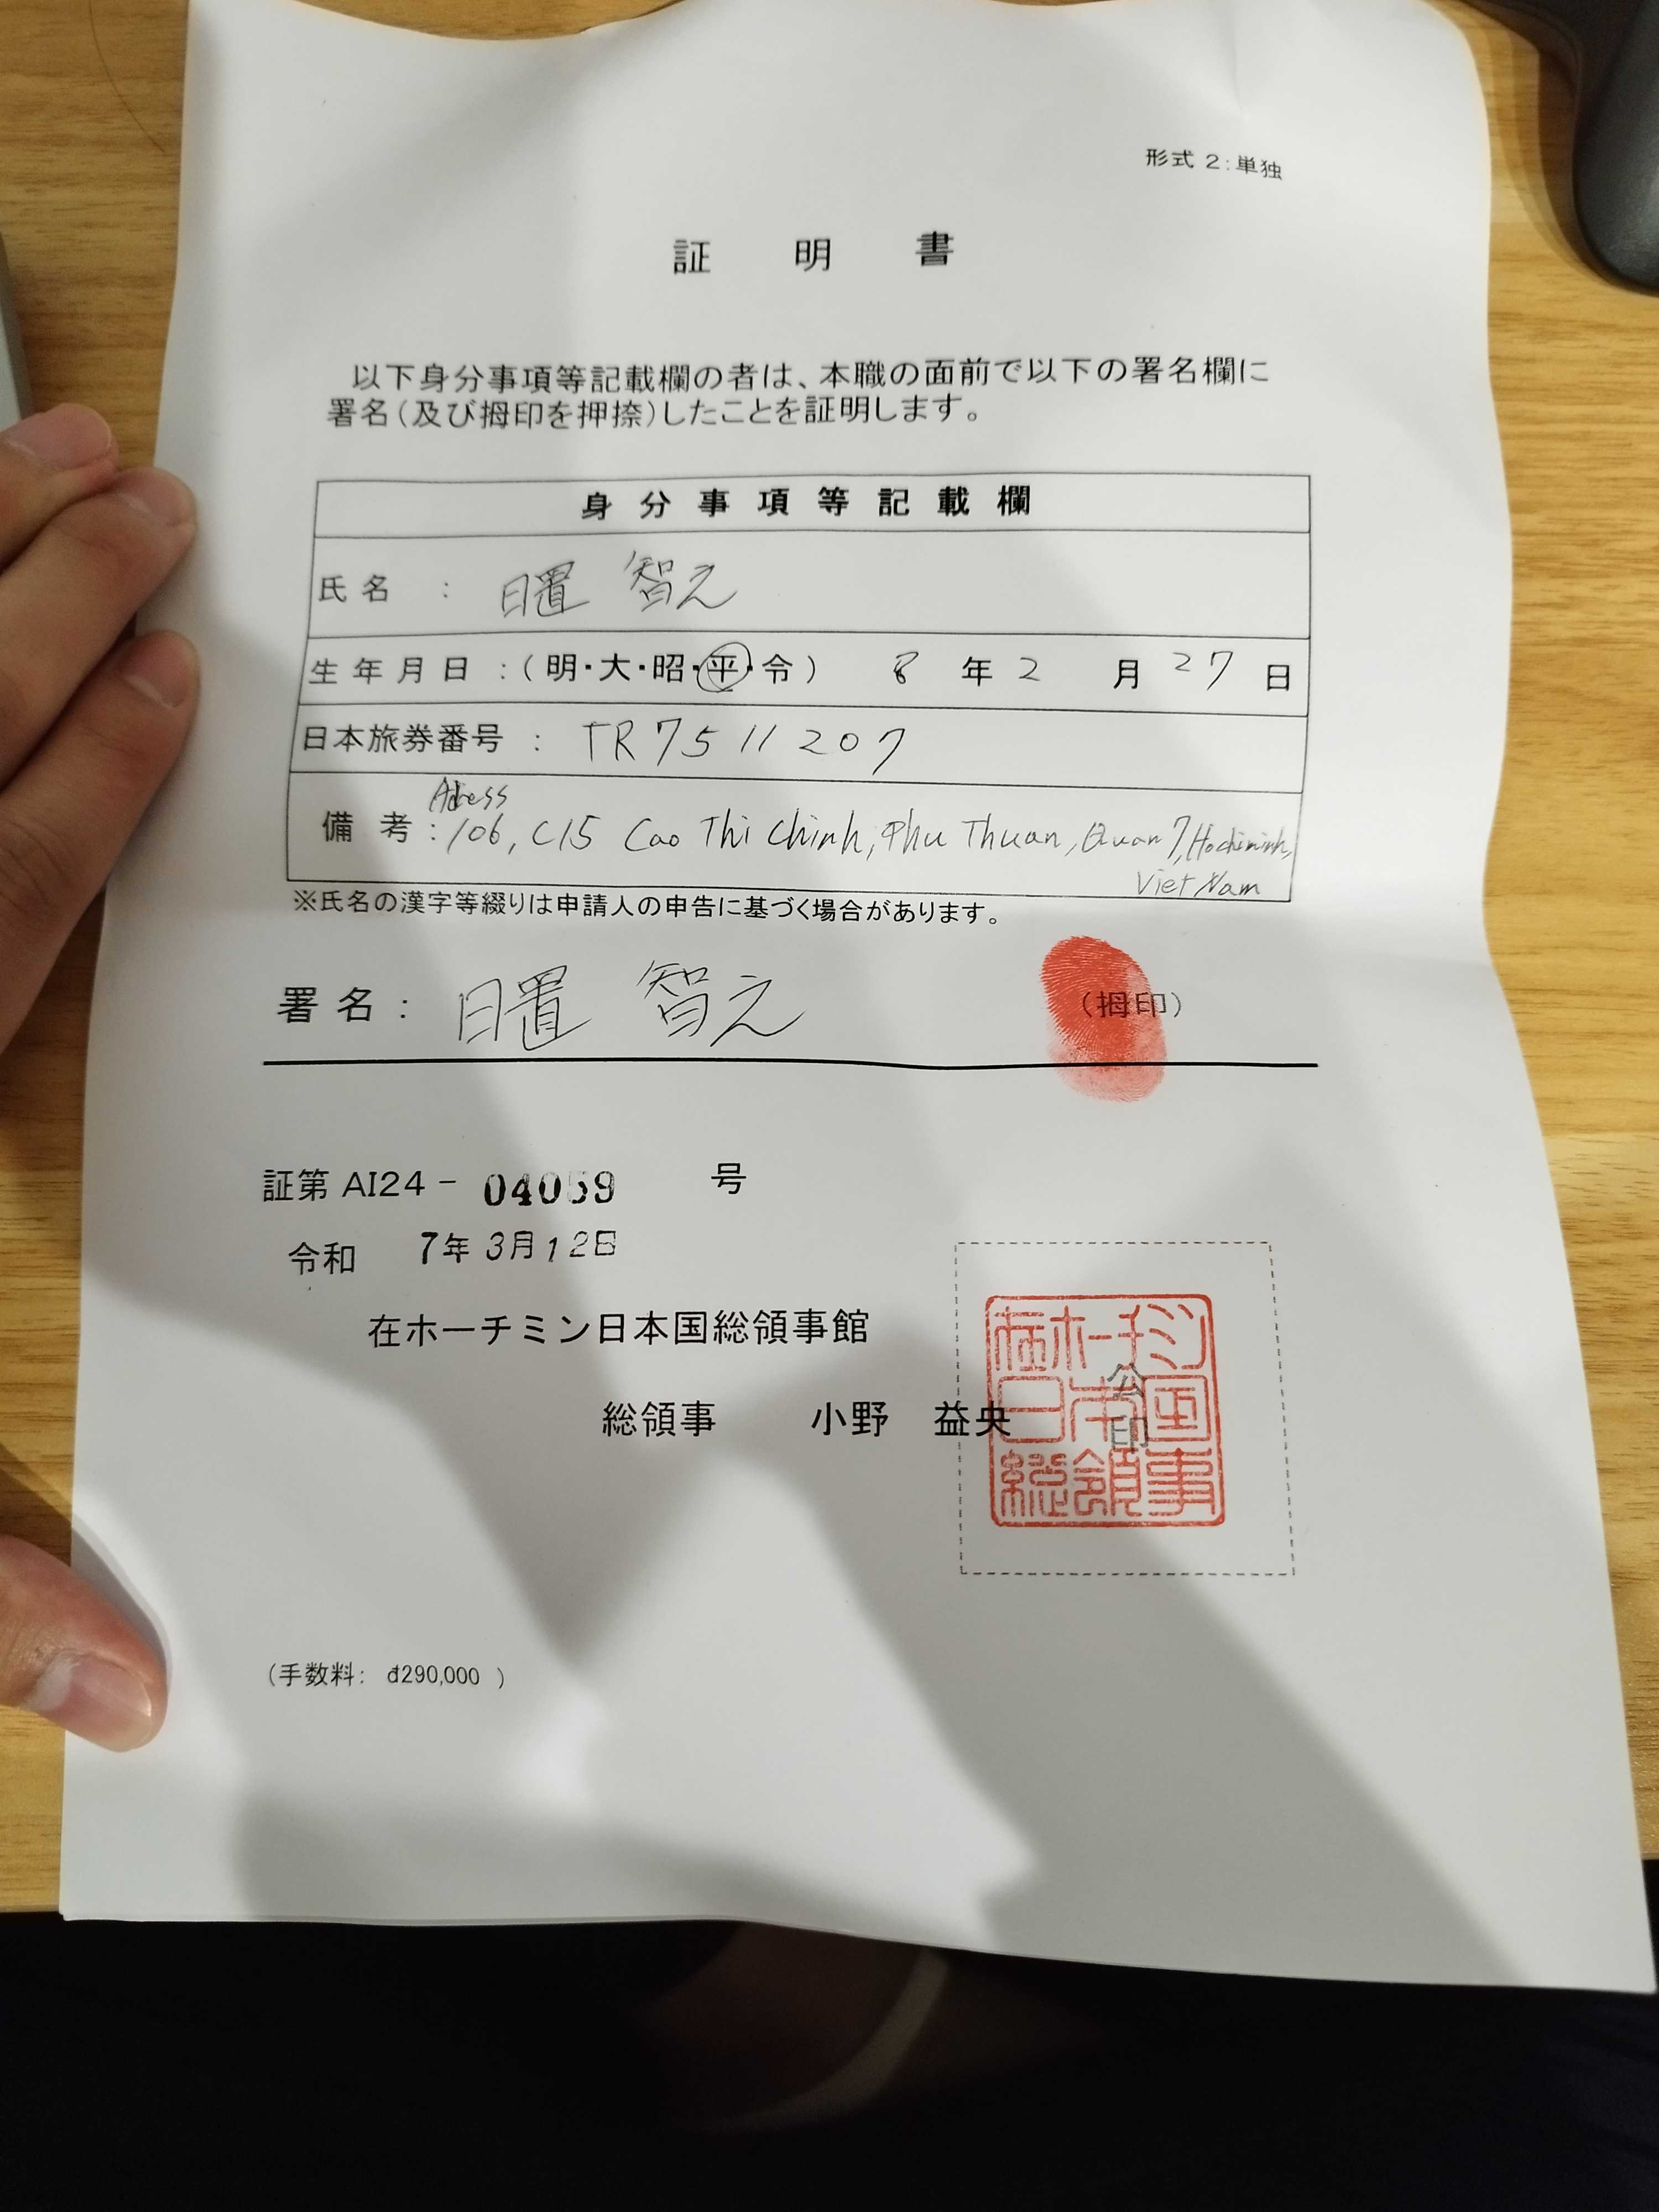 形式 2:単独
証 明 書
以下身分事項等記載欄の者は、本職の面前で以下の署名欄に
署名(及び拇印を押捺)したことを証明します。
身 分 事 項 等 記 載 欄
氏 名 : 日置 智え
生 年 月 日 :( 明・大・昭・平・令 ) 8 年 2 月 27 日
日本旅券番号 : TR7511207
Adress
備 考 : 106, C15 Cao Thi Chinh, Phu Thuan, Quan 7, Hochiminh,
Viet Nam
※氏名の漢字等綴りは申請人の申告に基づく場合があります。
署 名 : 日置 智え (拇印)
証第 AI24 - 04059 号
令和 7年 3月12日
在ホーチミン日本国総領事館
総領事 小野 益央
公
印
在ホーチミン
日本国
総領事
(手数料: đ290,000 )